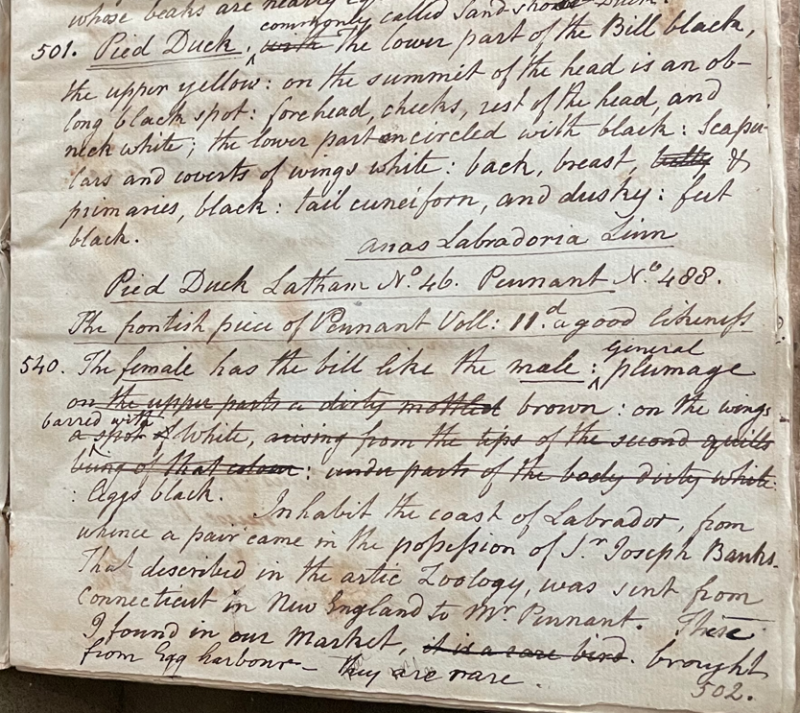 whose beaks are nearly eq
commonly called Sand shoal Duck.
501. Pied Duck, with The lower part of the Bill black,
the upper yellow: on the summit of the head is an ob-
long black spot: forehead, cheeks, rest of the head, and
neck white; the lower part encircled with black: Scapu-
lars and coverts of wings white: back, breast, belly &
primaries, black: tail cuneiforn, and dusky: feet
black.
Anas Labradoria Linn
Pied Duck Latham No. 46. Pennant No. 488.
The frontish piece of Pennant Voll: 11.d a good likeness
540. The female has the bill like the male: general plumage
on the upper parts a dirty mottled brown: on the wings
barred with
a spot of White, arising from the tips of the second quills
being of that colour: under parts of the body dirty white:
: Legs black. Inhabit the coast of Labrador, from
whence a pair came in the possession of Sr. Joseph Banks.
That described in the artic Zoology, was sent from
Connecticut in New England to Mr. Pennant. These
I found in our Market, it is a rare bird. brought
from Egg harbour – They are rare.
502.